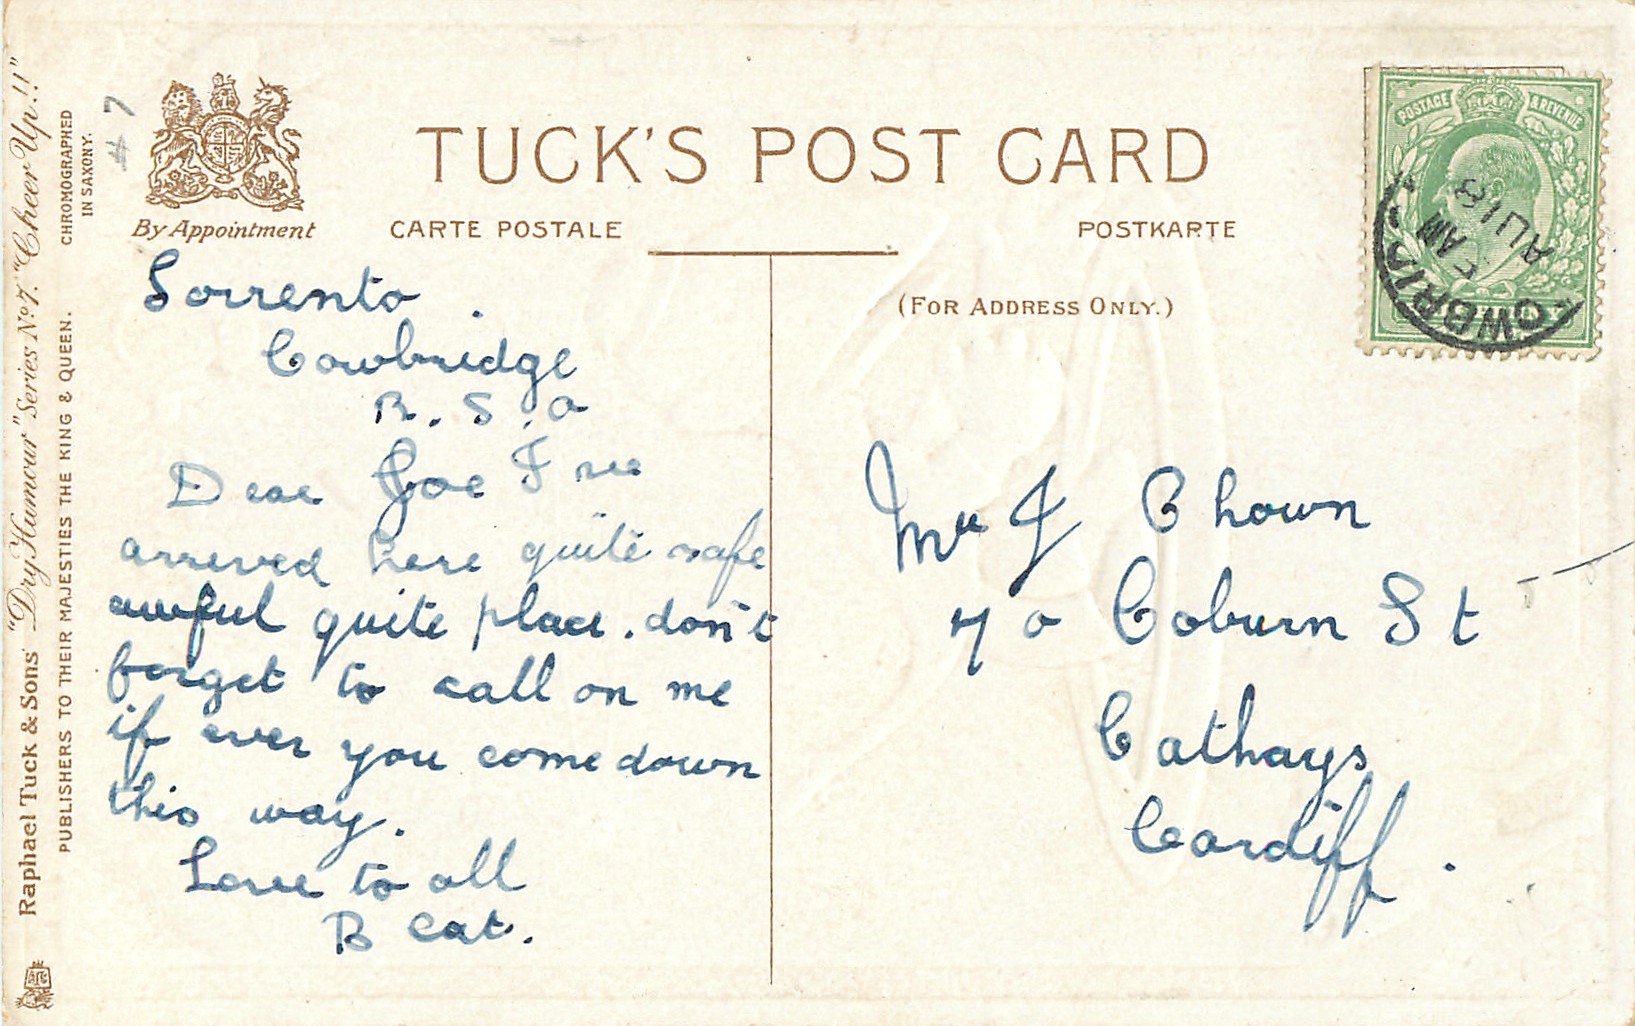 TUCK'S POST CARD
By Appointment
CARTE POSTALE
POSTKARTE
(FOR ADDRESS ONLY.)
Raphael Tuck & Sons' "Dry Humour" Series No 7. "Cheer Up.!!"
PUBLISHERS TO THEIR MAJESTIES THE KING & QUEEN.
CHROMOGRAPHED
IN SAXONY.
# 7
POSTAGE & REVENUE
AM
AU 18
Sorrento.
Cowbridge
R.S.O
Dear Joe
arrived here quite safe
awful quite place. don't
forget to call on me
if ever you come down
this way.
Love to all
B Cat.
Mr J Chown
70 Coburn St
Cathays
Cardiff.